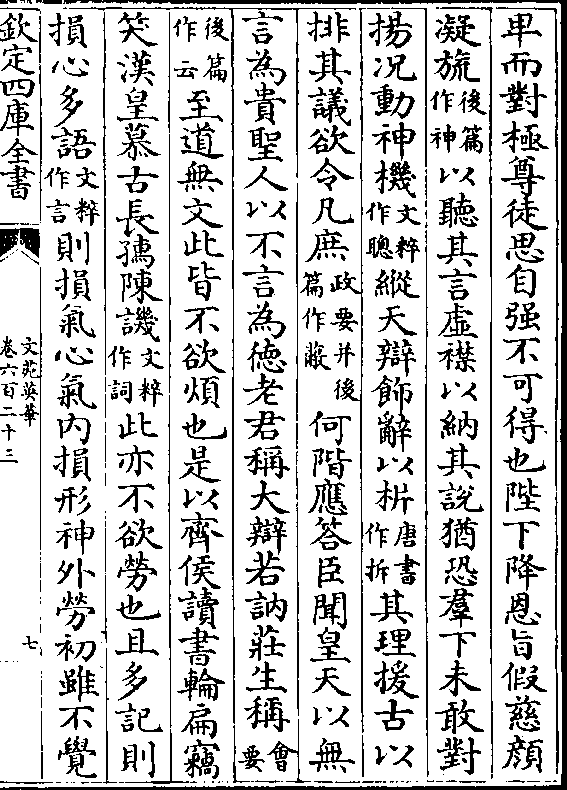 卑而對極尊徒思自强不可得也陛下降恩旨假慈顔
凝旒後篇作神以聽其言虛襟以納其說猶恐羣下未敢對
揚况動神機文粹作聰縱天辯飾辭以析唐書作拆其理援古以
排其議欲令凡庶政要并後篇作蔽何階應答臣聞皇天以無
言為貴聖人以不言為徳老君稱大辯若訥莊生稱會要
後篇作云至道無文此皆不欲煩也是以齊侯讀書輪扁竊
笑漢皇慕古長孺陳譏文粹作詞此亦不欲勞也且多記則
損心多語文粹作言則損氣心氣内損形神外勞初雖不覺
欽定四庫全書
文苑英華
卷六百二十三
七